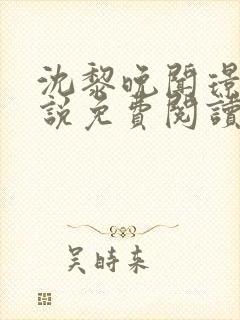 沈黎晚聞璟
說免費閱讀
吴時来